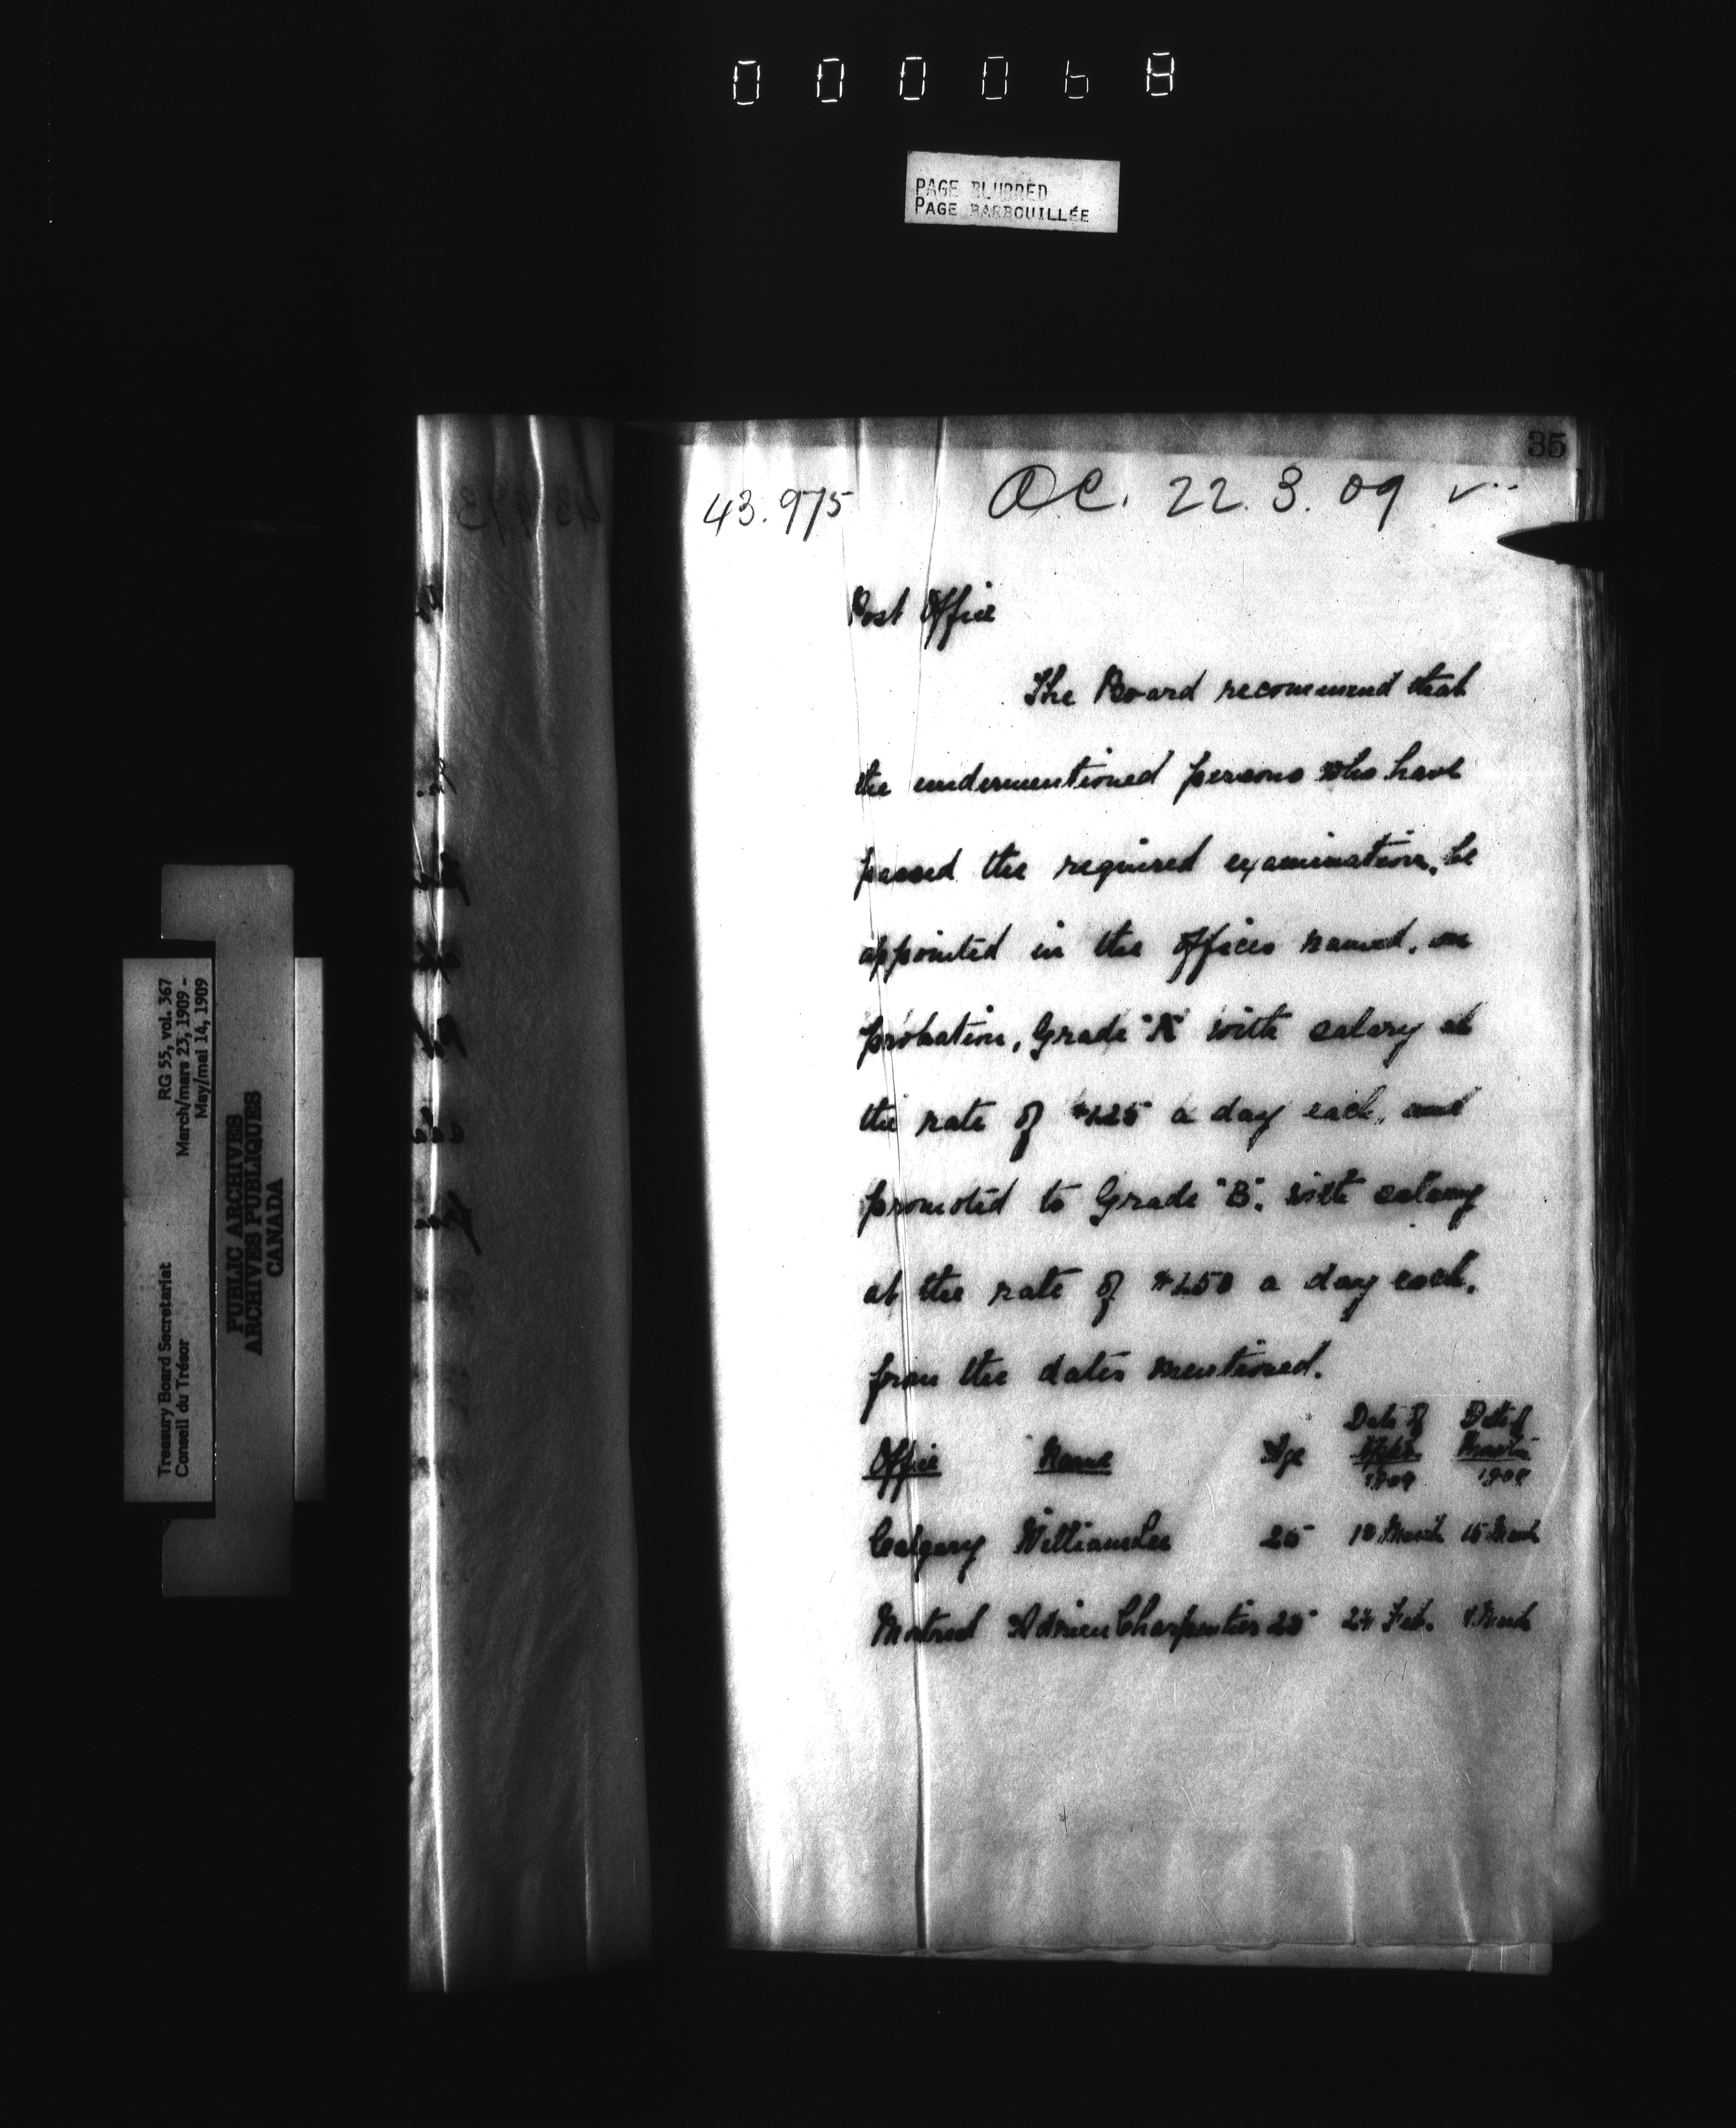 000068
PAGE BLURRED
PAGE BARBOUILLÉE
Treasury Board Secretariat RG 55, vol. 367
Conseil du Trésor March/mars 23, 1909 -
May/mai 14, 1909
PUBLIC ARCHIVES
ARCHIVES PUBLIQUES
CANADA
35
43.975 OC. 22.3.09
Post Office
The Board recommend that
the undermentioned persons who have
passed the required examination, be
appointed in the offices named, on
probation, Grade "A" with salary at
the rate of a day each, and
promoted to Grade "B". with salary
at the rate of a day each.
from the dates mentioned.
Date of Date of
Office Name Age
1909 1909
Calgary William Lee 25 March 15 March
Montreal Adrien Charpentier 24 Feb. March